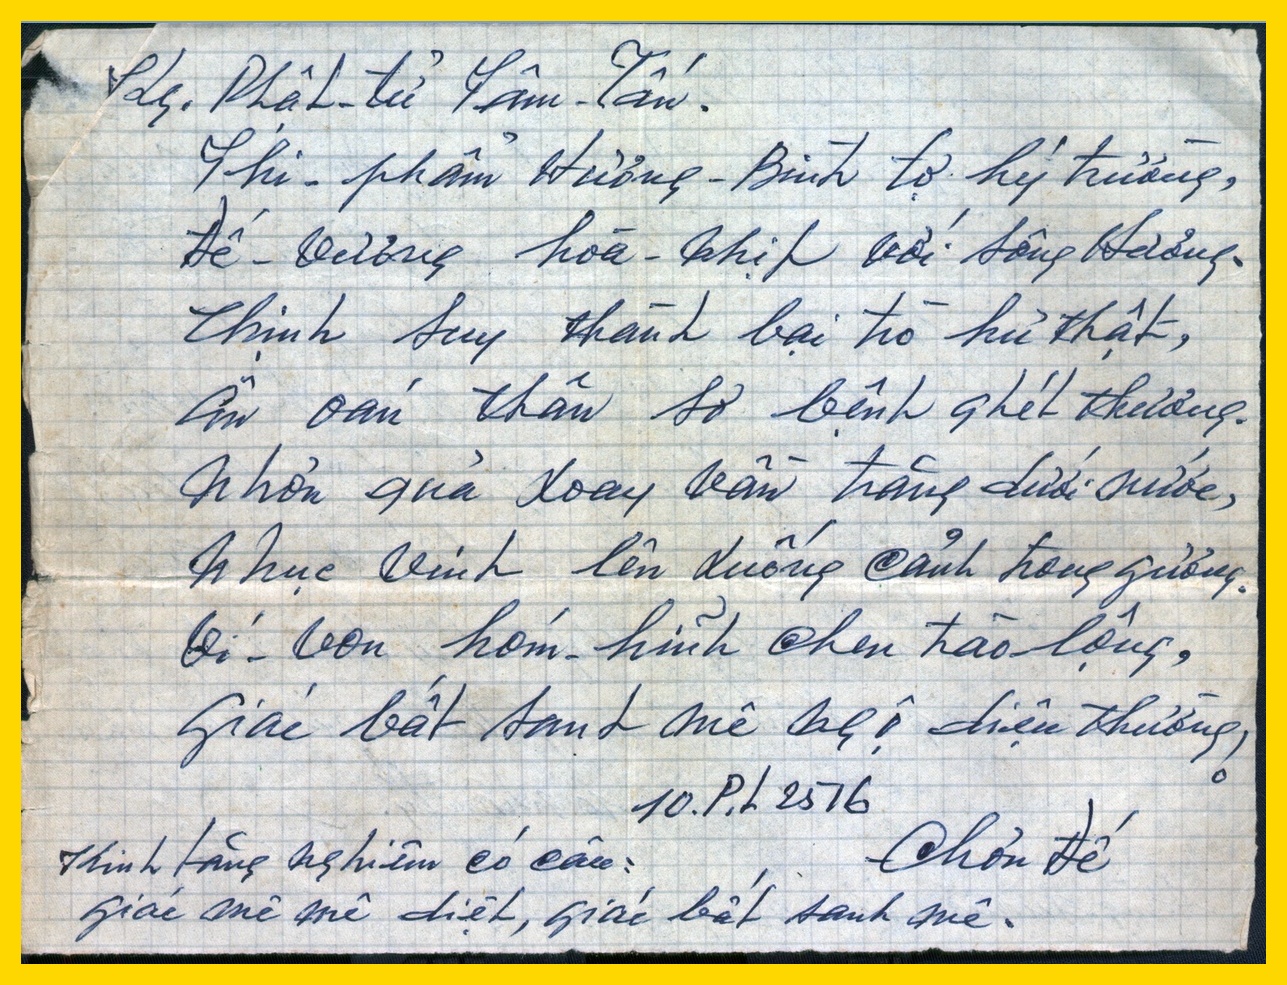 Kg. Phật-tử Tâm-Tấn.
Thi-phẩm Hương-Bình tợ hý trường,
Đế-Vương hòa-nhịp với sông Hương.
Thịnh suy thành bại trò hư thật,
Ân oán thân sơ bệnh ghét thương.
Nhơn quả xoay vần trăng dưới nước,
Nhục vinh lên xuống cảnh trong gương.
Ví-von hóm-hỉnh chen trào lộng,
Giác bất sanh mê ngộ diệu thường!
10.P.L 2516
Chơn Đế
Kinh Lăng nghiêm có câu:
giác mê mê diệt, giác bất sanh mê.